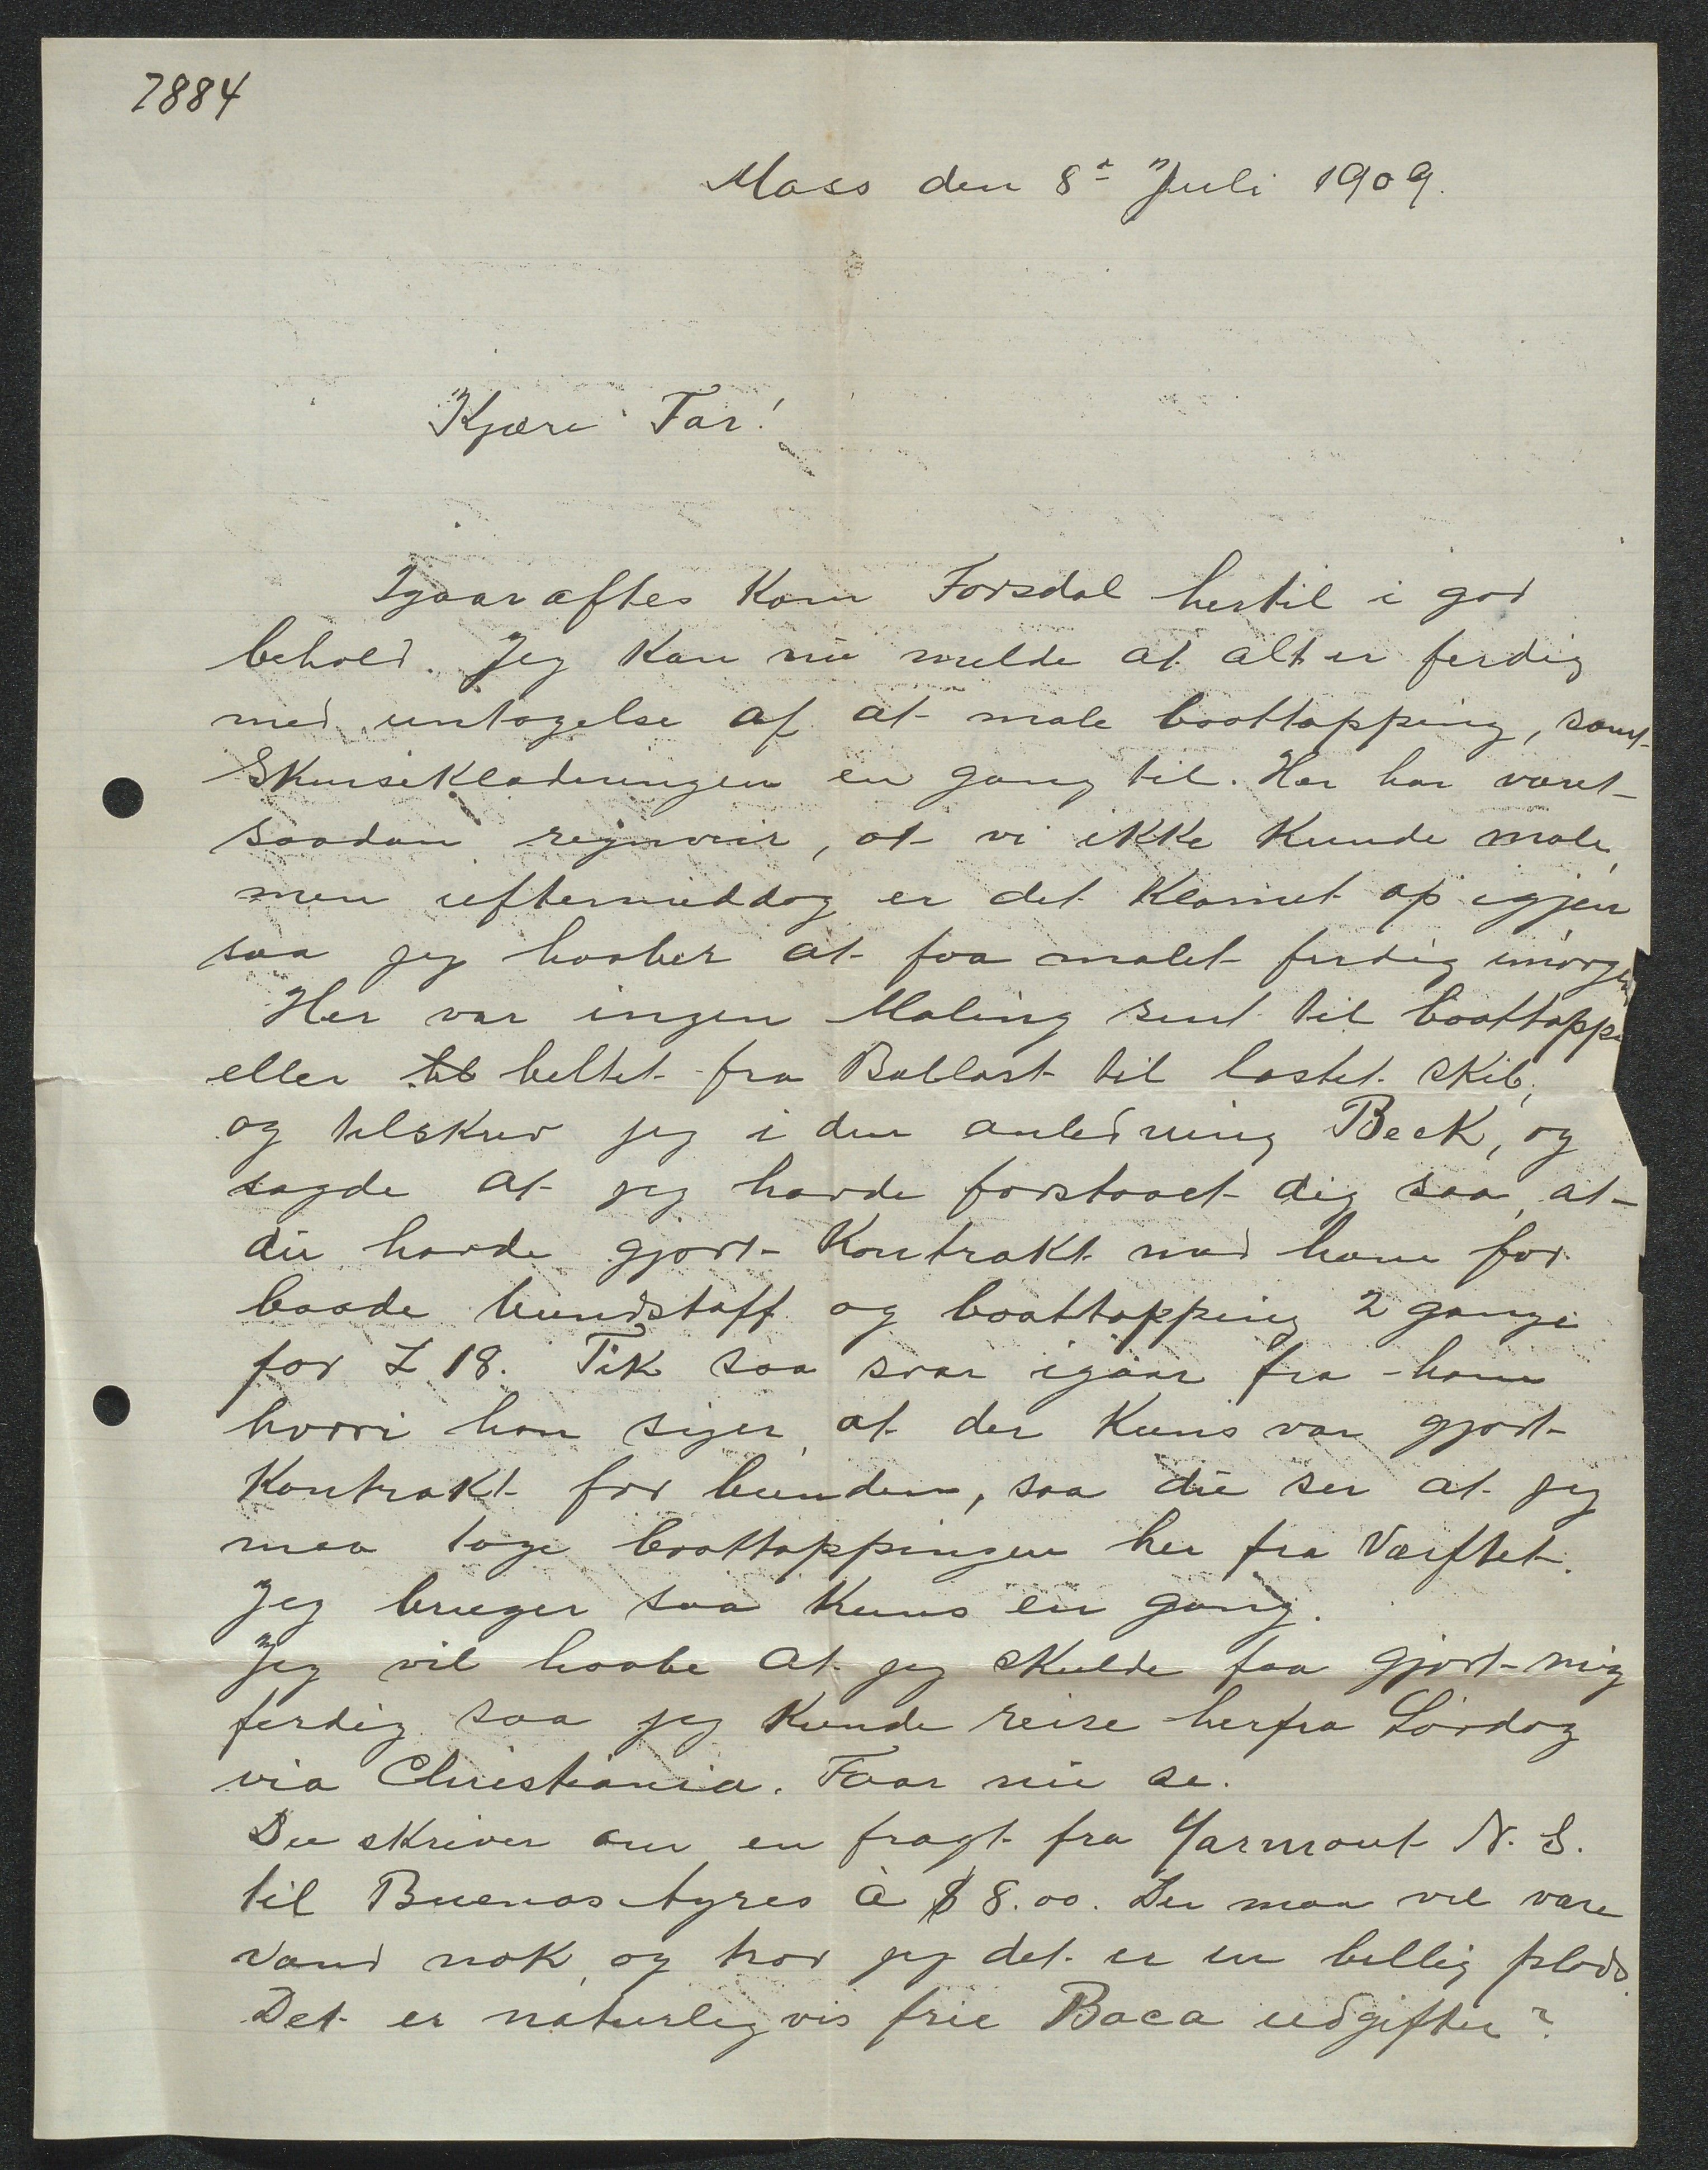 7884
Moss den 8de Juli 1909.
Kjære Far!
Igaaraftes kom Forsdal hertil i god
behold. Jeg kan nu melde at alt er ferdig
med untagelse af at male boottopping, samt
Skursekladningen en gang til. Her har været
saadan regnveir, at vi ikke kunde male,
men ieftermiddag er det klarnet op igjen
saa jeg haaber at faa malet ferdig imorgen
Her var ingen Maling sent til boottopp
eller til beltet fra Ballast til lastet skib,
og tilskrev jeg i den anledning Beck, og
sagde at jeg havde forstaaet dig saa, at
du havde gjort Kontrakt med ham for
baade bundstoff og boottopping 2 gange
for £ 18. Fik saa svar igaar fra ham
hvori han siger, at der kuns var gjort
Kontrakt for bunden, saa du ser at jeg
maa tage boottoppingen her fra Værftet.
Jeg bruger saa kuns en gang.
Jeg vil haabe at jeg skulde faa gjort mig
ferdig saa jeg kunde reise herfra Lördag
via Christiania. Faar nu se.
Du skriver om en fragt fra Yarmout N. S.
til Buenos Ayres à $ 8.00. Der maa vel være
vand nok, og tror jeg det er en billig plads.
Det er naturligvis frie Boca udgifter?